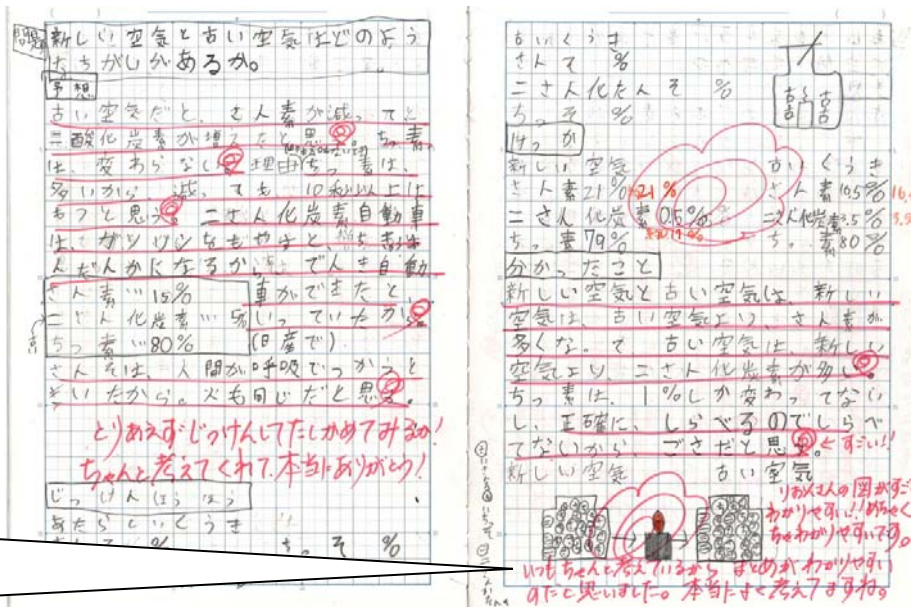 問題
新しい空気と古い空気はどのよう
なちがいがあるか。
予想
古い空気だと、さん素が減って
二酸化炭素が増えたと思う。ちっ素
は、変わらない。理由は、ちっ素は、
多いから、減っても 10秒以上は
もつと思う。二さん化炭素自動車
は、ガソリンなもやすと、
んだんかになるから。でんき自動
さん素…15%
車ができたと
二さん化炭素…5%
いっていたから。
ちっ素…80%
(日産で)
さんそは、人間が呼吸でつかうと
きいたから。火も同じだと思う。
とりあえずじっけんしてたしかめてみるか!
ちゃんと考えてくれて、本当にありがとう!
じっけんほうほう
あたらしいくうき
さんそ %
ちっそ %
古いくうき
さんそ %
二さん化たんそ %
ちっそ %
けっか
新しい空気
古いくうき
さん素21% 21%
さん素16.5%
二さん化炭素0.5%
二さん化炭素3.5%
ちっ素79%
ちっ素80%
分かったこと
新しい空気と古い空気は、新しい
空気は、古い空気より、さん素が
多くなって 古い空気は、新しい
空気より、二さん化炭素が多い。
ちっ素は、1%しか変わってない
し、正確に、しらべるのでしらべ
てないから、ごさだと思う。 ←すごい!!
新しい空気
古い空気
りおんさんの図がすご
わかりやすい!!めちゃく
ちゃわかりやすいです。
いつもちゃんと考えているから まとめがわかりやすい
のだと思いました。本当によく考えてますね。